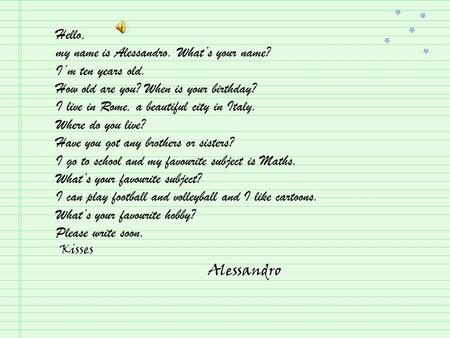 Hello,
my name is Alessandro. What's your name?
I'm ten years old.
How old are you? When is your birthday?
I live in Rome, a beautiful city in Italy.
Where do you live?
Have you got any brothers or sisters?
I go to school and my favourite subject is Maths.
What's your favourite subject?
I can play football and volleyball and I like cartoons.
What's your favourite hobby?
Please write soon.
Kisses
Alessandro